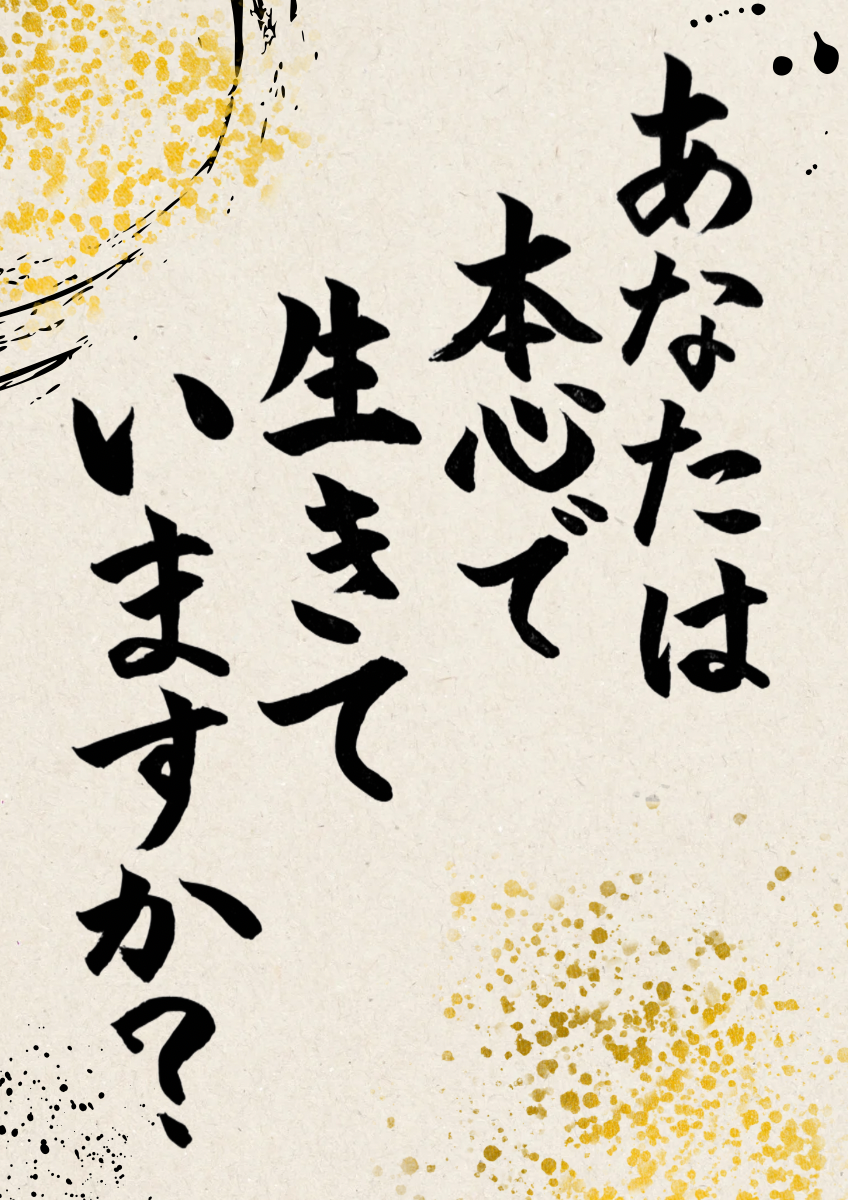 あなたは
本心で
生きて
いますか?